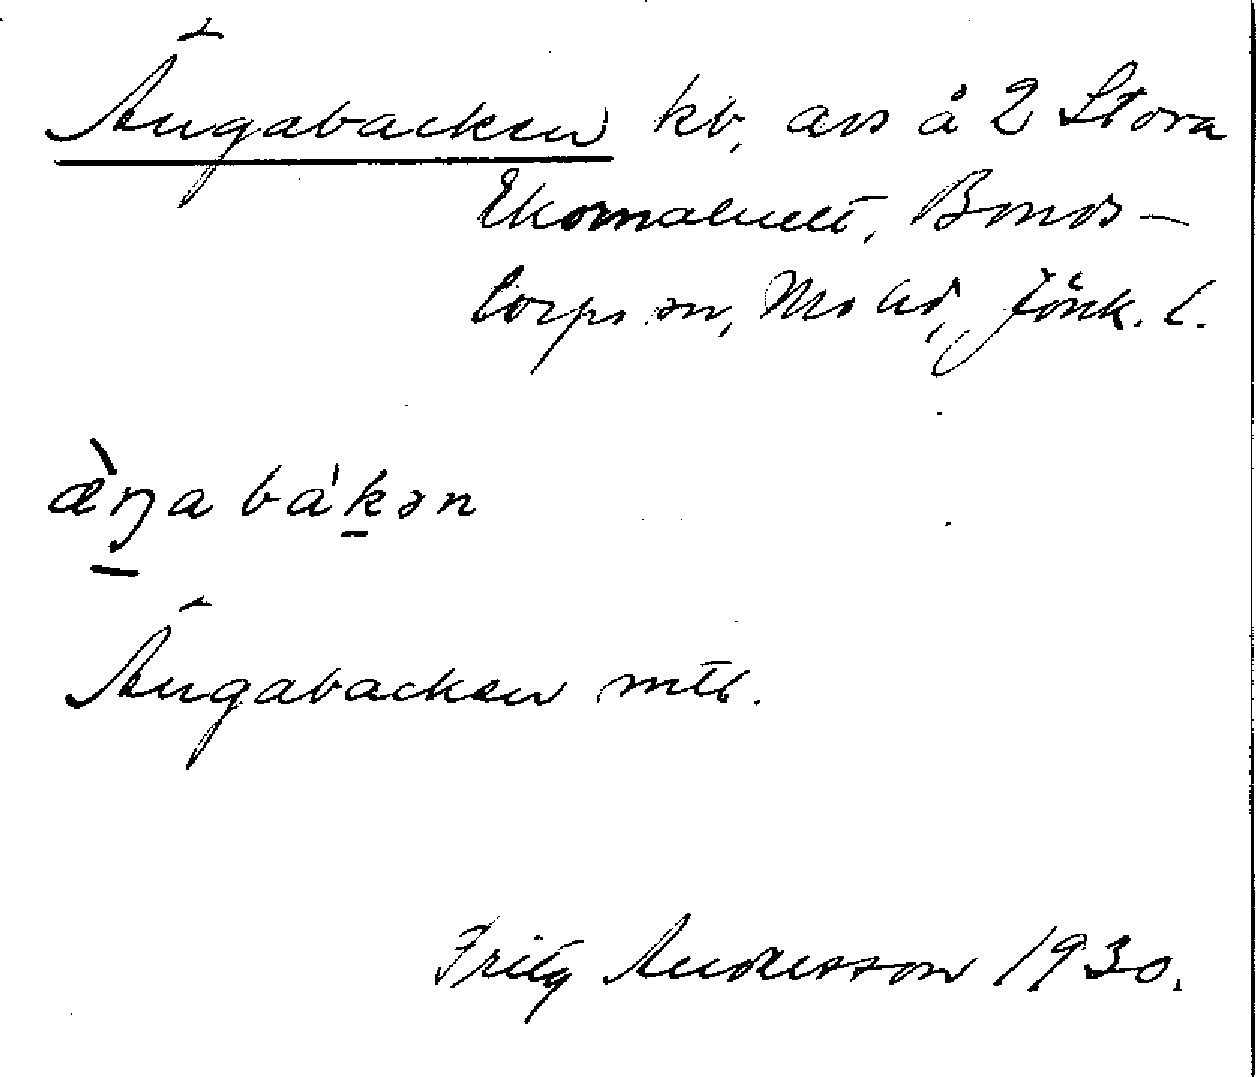 Ängabacken kb, avs å 2 Stora
Ekornatuett, Bonds-
torps sn, Mo hd, Jönk. l.
æ̀ŋabákən
Ängabacken mtl.
Fritz Andersson 1930.